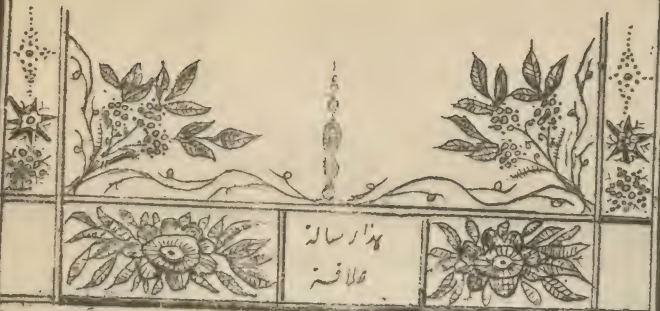 هذا رسالة
علاقة